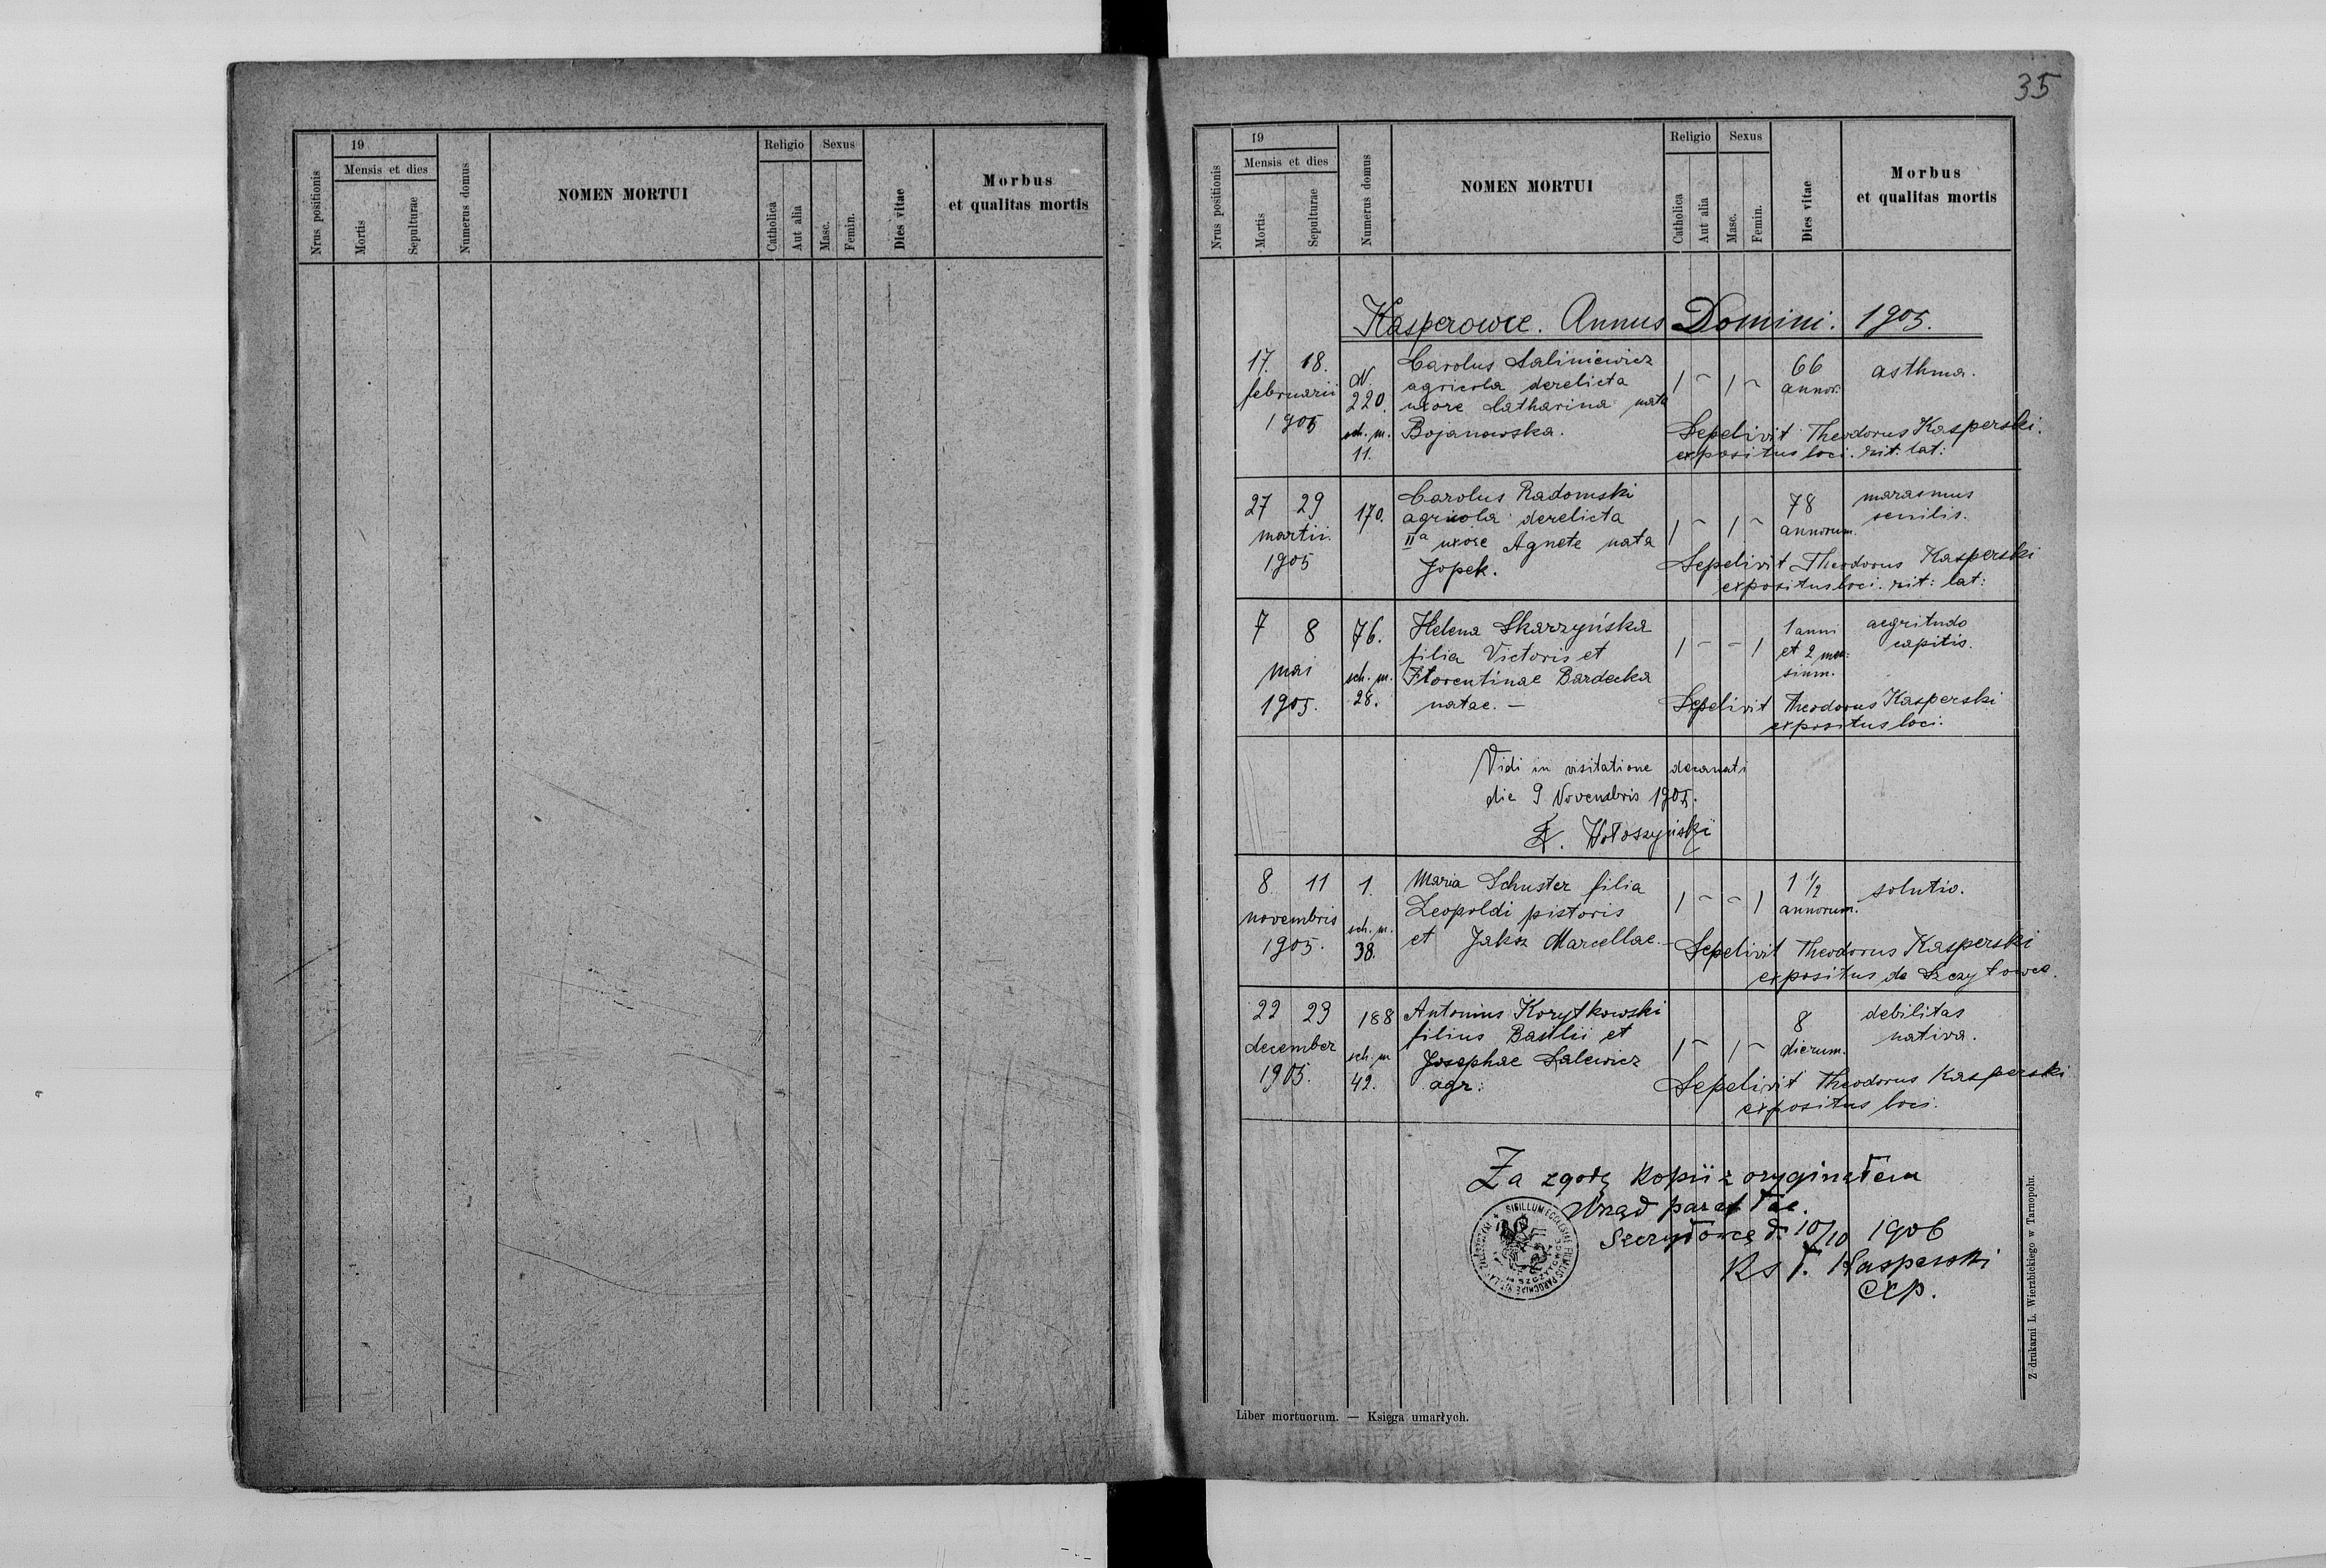 19
Mensis et dies
Nrus positionis
Mortis
Sepulturae
Numerus domus
NOMEN MORTUI
Religio
Sexus
Catholica
Aut alia
Masc.
Femin.
Dies vitae
Morbus
et qualitas mortis
35
19
Mensis et dies
Nrus positionis
Mortis
Sepulturae
Numerus domus
NOMEN MORTUI
Religio
Sexus
Catholica
Aut alia
Masc.
Femin.
Dies vitae
Morbus
et qualitas mortis
Kasperowce. Annus Domini. 1905.
17. 18.
februarii
1905
N.
220.
sch. m.
11.
Carolus Saliniewicz
agricola derelicta
uxore Catharina nata
Bojanowska.
1 – 1 –
66
annor:
asthma.
Sepelivit Theodorus Kasperski.
expositus loci. rit: lat:
27 29
martii.
1905
170.
Carolus Radomski
agricola derelicta
IIa uxore Agnete nata
Jopek.
1 – 1 –
78
annorum.
marasmus
senilis.
Sepelivit Theodorus Kasperski
expositus loci. rit: lat:
7 8
mai
1905.
76.
sch. m.
28.
Helena Skarzyńska
filia Victoris et
Florentinae Bardecka
natae. –
1 – – 1
1 anni
et 2 men:
sium.
aegritudo
capitis.
Sepelivit Theodorus Kasperski
expositus loci.
Vidi in visitatione decanati
die 9 Novembris 1905.
Wołoszyński
8. 11
novembris
1905.
1.
sch. m.
38.
Maria Schuster filia
Leopoldi pistoris
et Jaksz Marcellae. –
1 – – 1
1 1/2
annorum.
solutio.
Sepelivit Theodorus Kasperski
expositus de Szczytowce.
22 23
december
1905.
188
sch. m
42.
Antonius Korytkowski
filius Basilii et
Josephae Salewicz
agr:
1 – 1 –
8
dierum.
debilitas
nativa.
Sepelivit Theodorus Kasperski
expositus loci.
Za zgodę kopii z oryginałem
Urząd paraf łac.
Szczytowce d. 10/10 1906
Ks T. Kasperski
exp.
Liber mortuorum. — Księga umarłych.
Z drukarni L. Wierzbickiego w Tarnopolu.